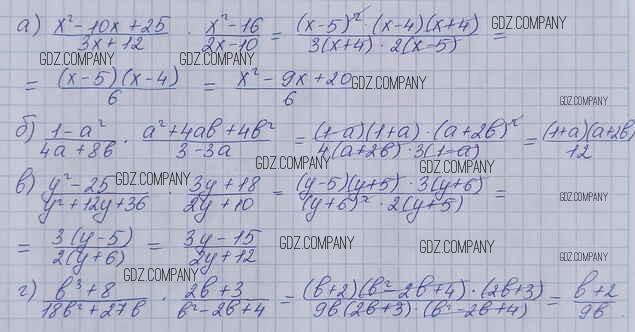 а) (x² - 10x + 25)/(3x + 12) · (x² - 16)/(2x - 10) = ((x-5)² · (x-4)(x+4))/(3(x+4) · 2(x-5)) = GDZ.COMPANY
GDZ.COMPANY GDZ.COMPANY
= ((x-5)(x-4))/6 = (x² - 9x + 20)/6 GDZ.COMPANY
GDZ.COMPANY
б) (1 - a²)/(4a + 8b) · (a² + 4ab + 4b²)/(3 - 3a) = ((1-a)(1+a) · (a+2b)²)/(4(a+2b) · 3(1-a)) = ((1+a)(a+2b))/12
GDZ.COMPANY GDZ.COMPANY
в) (y² - 25)/(y² + 12y + 36) · (3y + 18)/(2y + 10) = ((y-5)(y+5) · 3(y+6))/((y+6)² · 2(y+5)) =
GDZ.COMPANY GDZ.COMPANY
= (3(y-5))/(2(y+6)) = (3y - 15)/(2y + 12) GDZ.COMPANY GDZ.COMPANY GDZ.COMPANY
GDZ.COMPANY
г) (b³ + 8)/(18b² + 27b) · (2b + 3)/(b² - 2b + 4) = ((b+2)(b² - 2b + 4) · (2b+3))/(9b(2b+3) · (b² - 2b + 4)) = (b + 2)/(9b).